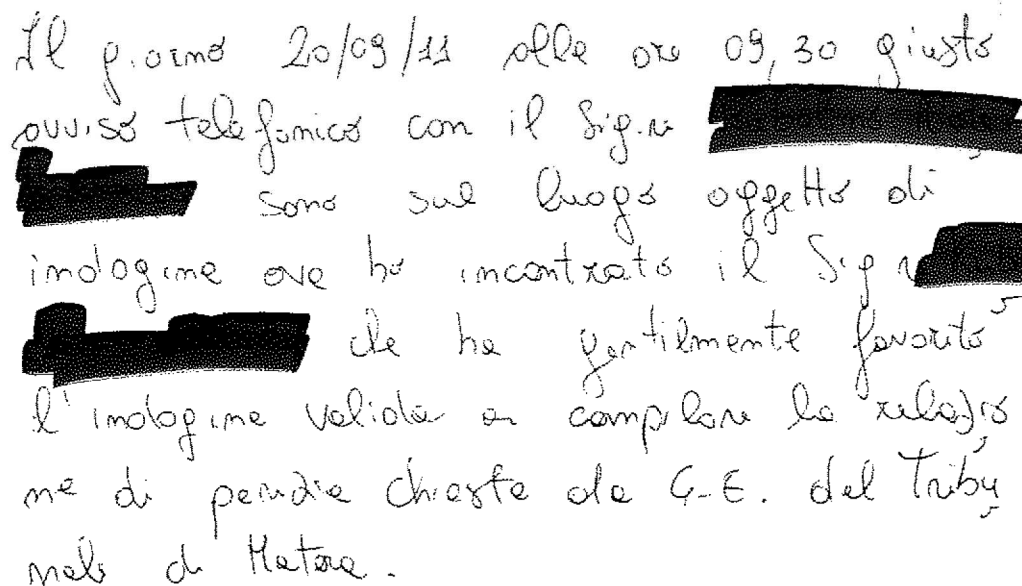 Il giorno 20/09/11 alle ore 09,30 giusto
avviso telefonico con il Sig.re
sono sul luogo oggetto di
indagine ove ho incontrato il Sig.r
che ha gentilmente favorito
l'indagine valida a compilare la relazio
ne di perizia chiesta da G.E. del Tribu
nale di Matera.